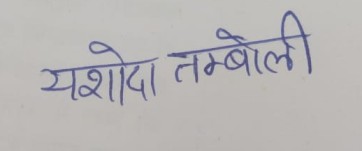 यशोदा तम्बोली